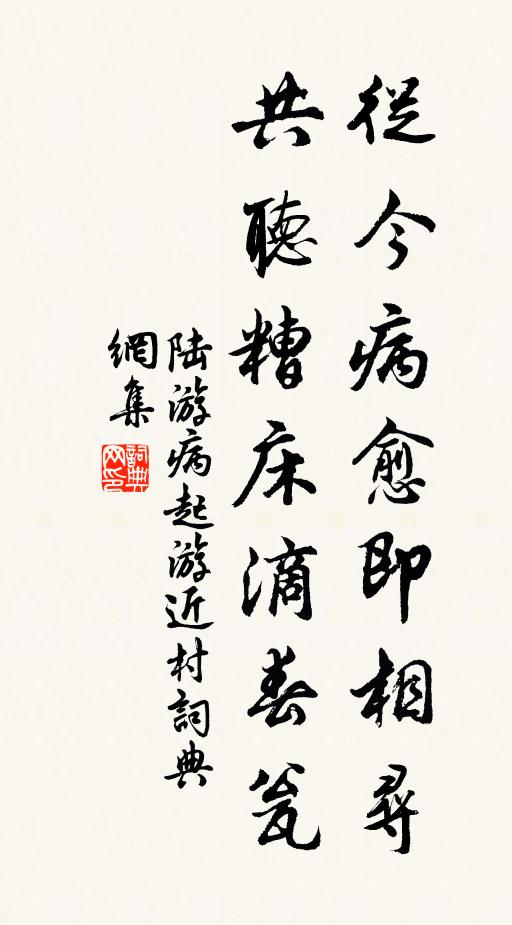 從今病愈即相尋
共聽糟床滴春瓮
陆游病起游近村詞典
網集
詞典网印